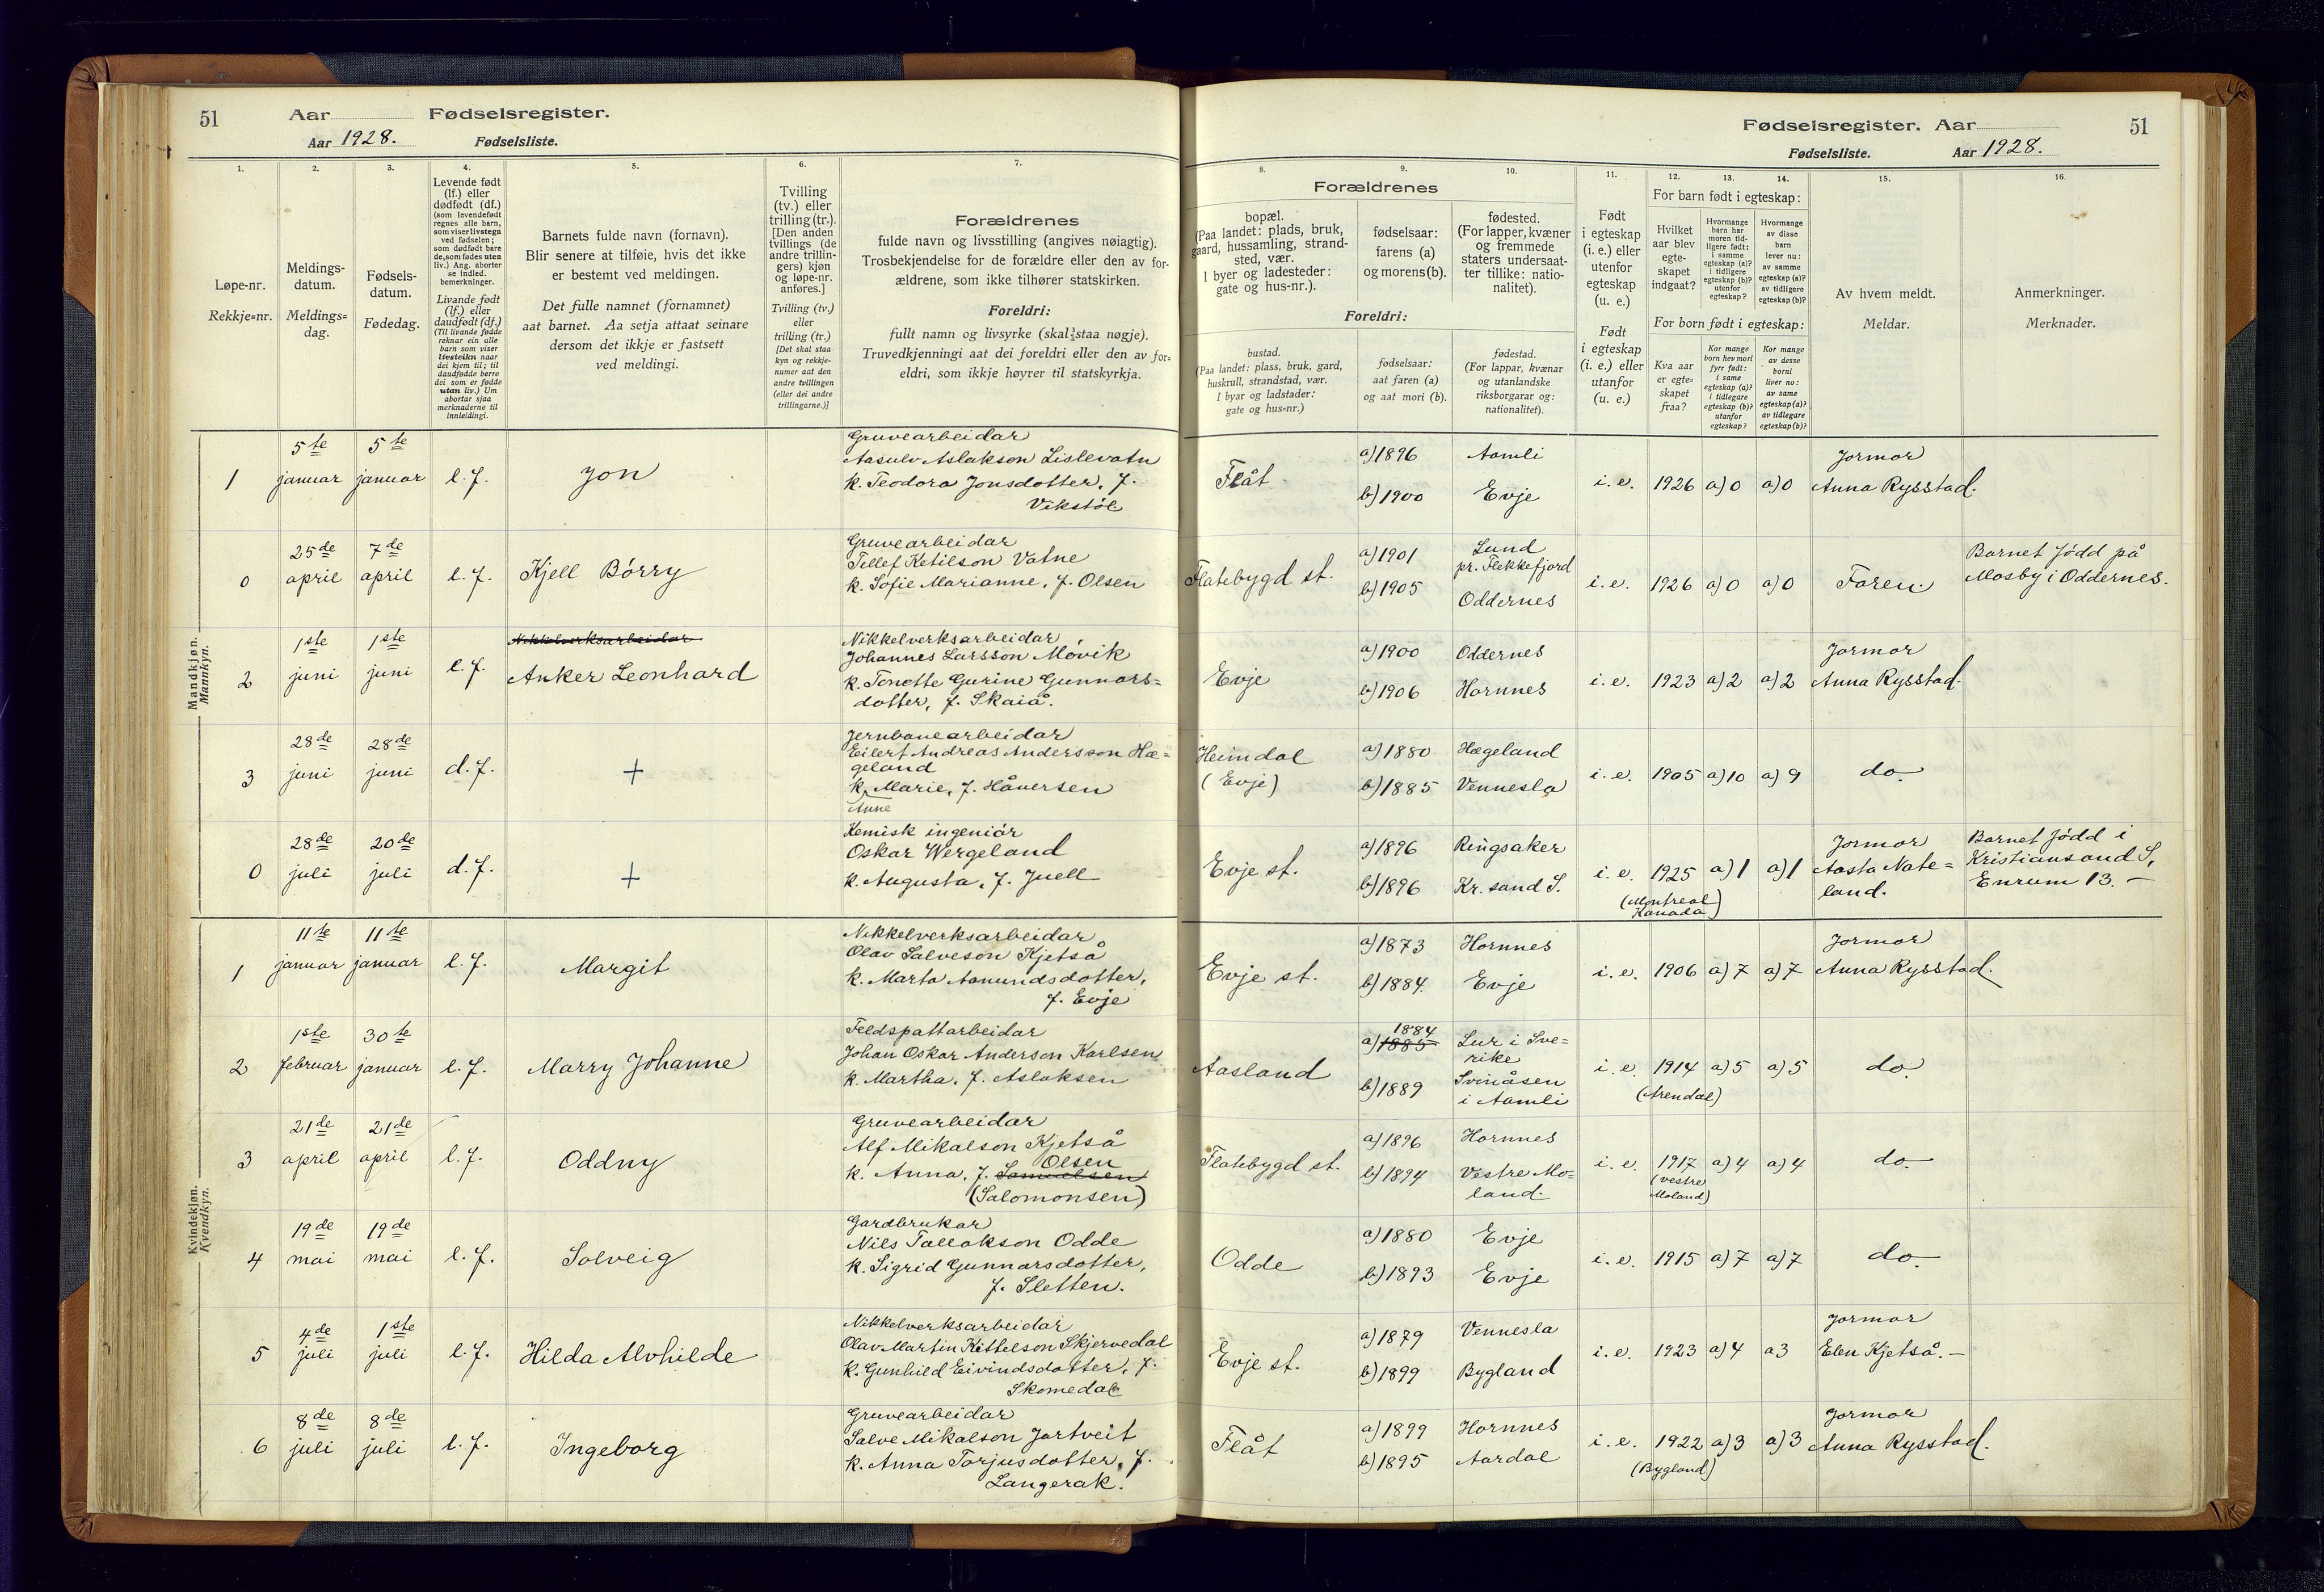 51
Aar
Fødselsregister.
Aar 1928.
Fødselsliste.
1.
2.
3.
4.
5.
6.
7.
Løpe-nr.
Rekkje=nr.
Meldings-
datum.
Meldings=
dag.
Fødsels-
datum.
Fødedag.
Levende født
(lf.) eller
dødfødt (df.)
(som levendefødt
regnes alle barn,
som viser livstegn
ved fødselen;
som dødfødt bare
de, som fødes uten
liv.) Ang. aborter
se indled.
bemerkninger.
Livande født
(lf.) eller
daudfødt (df.)
(Til livande fødde
reknar ein alle
barn som viser
livsteikn naar
dei kjem til; til
daudfødde berre
dei som er fødde
utan liv.) Um
abortar sjaa
merknaderne til
innleidingi.
Barnets fulde navn (fornavn).
Blir senere at tilføie, hvis det ikke
er bestemt ved meldingen.
Det fulle namnet (fornamnet)
aat barnet. Aa setja attaat seinare
dersom det ikkje er fastsett
ved meldingi.
Tvilling
(tv.) eller
trilling (tr.).
[Den anden
tvillings (de
andre trillin-
gers) kjøn
og løpe-nr.
anføres.]
Tvilling (tv.)
eller
trilling (tr.)
[Det skal staa
kyn og rekkje-
numer aat den
andre tvillingen
(eller dei andre
trillingarne.)]
Forældrenes
fulde navn og livsstilling (angives nøiagtig).
Trosbekjendelse for de forældre eller den av for-
ældrene, som ikke tilhører statskirken.
Foreldri:
fullt namn og livsyrke (skal staa nøgje).
Truvedkjenningi aat dei foreldri eller den av for=
eldri, som ikkje høyrer til statskyrkja.
Mandkjøn.
Mannkyn.
1
5te januar
5te januar
l. f.
Jon
Gruvearbeidar
Aasulv Aslakson Lislevatn
k. Teodora Jonsdotter, f.
Vikstøl
0
25de april
7de april
l. f.
Kjell Börry
Gruvearbeidar
Tellef Ketilson Vatne
k. Sofie Marianne, f. Olsen
2
1ste juni
1ste juni
l. f.
Nikkelverksarbeidar
Anker Leonhard
Nikkelverksarbeidar
Johannes Larsson Mövik
k. Tonette Gurine Gunnars=
dotter, f. Skaiå.
3
28de juni
28de juni
d. f.
+
Jernbanearbeidar
Eilert Andreas Andersson Hæ=
geland
k. Marie, f. Håversen
Anne
0
28de juli
20de juli
d. f.
+
Kemisk ingeniör
Oskar Wergeland
k. Augusta, f. Juell
Kvindekjøn.
Kvendkyn.
1
11te januar
11te januar
l. f.
Margit
Nikkelverksarbeidar
Olav Salveson Kjetså
k. Marta Aamundsdotter,
f. Evje
2
1ste februar
30te januar
l. f.
Marry Johanne
Feldspattarbeidar
Johan Oskar Anderson Karlsen
k. Martha, f. Aslaksen
3
21de april
21de april
l. f.
Oddny
Gruvearbeidar
Alf Mikalson Kjetså
Olsen
k. Anna, f. Samuelsen
(Salomonsen)
4
19de mai
19de mai
l. f.
Solveig
Gardbrukar
Nils Tallakson Odde
k. Sigrid Gunnarsdotter,
f. Sletten.
5
4de juli
1ste juli
l. f.
Hilda Alvhilde
Nikkelverksarbeidar
Olav Martin Kittelson Skjervedal
k. Gunhild Eivindsdotter, f.
Skomedal
6
8de juli
8de juli
l. f.
Ingeborg
Gruvearbeidar
Salve Mikalson Jortveit
k. Anna Torjusdotter, f.
Langerak.
Fødselsregister. Aar
51
Fødselsliste.
Aar 1928.
8.
9.
10.
11.
12.
13.
14.
15.
16.
Forældrenes
bopæl.
(Paa landet: plads, bruk,
gaard, hussamling, strand-
sted, vær.
I byer og ladesteder:
gate og hus-nr.).
fødselsaar:
farens (a)
og morens (b).
fødested.
(For lapper, kvæner
og fremmede
staters undersaat-
ter tillike: natio-
nalitet).
Foreldri:
bustad.
(Paa landet: plass, bruk, gard,
huskrull, strandstad, vær.
I byar og ladstader:
gate og hus=nr.)
fødselsaar:
aat faren (a)
og aat mori (b).
fødestad.
(For lappar, kvænar
og utanlandske
riksborgarar og:
nationalitet).
Født
i egteskap
(i. e.) eller
utenfor
egteskap
(u. e.)
Født
i egteskap
(i. e.) eller
utanfor
(u. e.)
For barn født i egteskap:
Hvilket
aar blev
egte-
skapet
indgaat?
Hvormange
barn har
moren tid-
ligere født:
i samme
egteskap (a)?
i tidligere
egteskap (b)?
utenfor
egteskap?
Hvormange
av disse
barn
lever nu:
av samme
egteskap (a)?
av tidligere
egteskap (b)?
For born født i egteskap:
Kva aar
er egte=
skapet
fraa?
Kor mange
born hev mori
fyrr født:
i same
egteskap (a)?
i tidlegare
egteskap (b)?
utanfor
egteskap?
Kor mange
av desse
borni
liver no:
av same
egteskap (a)?
av tidlegare
egteskap (b)?
Av hvem meldt.
Meldar.
Anmerkninger.
Merknader.
Flåt
a) 1896
b) 1900
Aamli
Evje
i. e.
1926
a) 0
a) 0
Jormor
Anna Rysstad.
Flatebygd st.
a) 1901
b) 1905
Lund
pr. Flekkefjord
Oddernes
i. e.
1926
a) 0
a) 0
Faren
Barnet född på
Mosby i Oddernes.
Evje
a) 1900
b) 1906
Oddernes
Hornnes
i. e.
1923
a) 2
a) 2
Jormor
Anna Rysstad.
Heimdal
(Evje)
a) 1880
b) 1885
Hægeland
Vennesla
i. e.
1905
a) 10
a) 9
do.
Evje st.
a) 1896
b) 1896
Ringsaker
Kr. sand S.
i. e.
1925
(Montreal
Kanada)
a) 1
a) 1
Jormor
Aasta Nate=
land.
Barnet född i
Kristiansand S,
Enrum 13. —
Evje st.
a) 1873
b) 1884.
Hornnes
Evje
i. e.
1906
a) 7
a) 7
Jormor
Anna Rysstad.
Aasland
1884
a) 1885
b) 1889
Lur i Sve=
rike
Svinåsen
i Aamli
i. e.
1914
(Arendal)
a) 5
a) 5
do.
Flatebygd st.
a) 1896
b) 1894
Hornnes
Vestre Mo=
land.
i. e.
1917
(vestre
Moland)
a) 4
a) 4
do.
Odde
a) 1880
b) 1893
Evje
Evje
i. e.
1915
a) 7
a) 7
do.
Evje st.
a) 1879
b) 1899
Vennesla
Bygland
i. e.
1923
a) 4
a 3
Jormor
Elen Kjetså. —
Flåt
a) 1899
b) 1895
Hornnes
Aardal
i. e.
1922
(Bygland)
a) 3
a) 3
Jormor
Anna Rysstad.